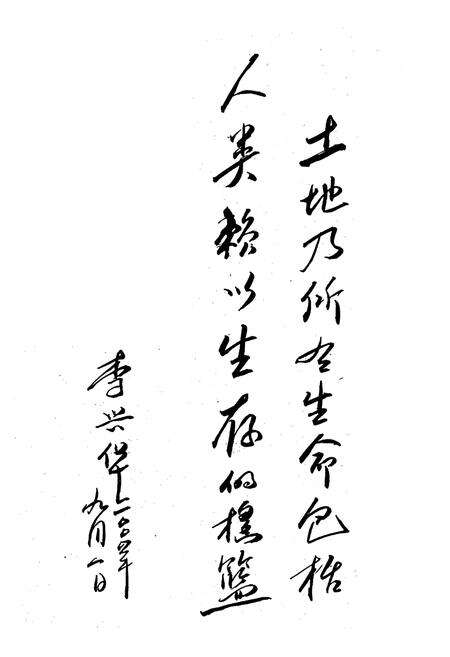 土地乃所有生命包括
人类赖以生存的摇篮
李兴华二〇〇四年
九月一日